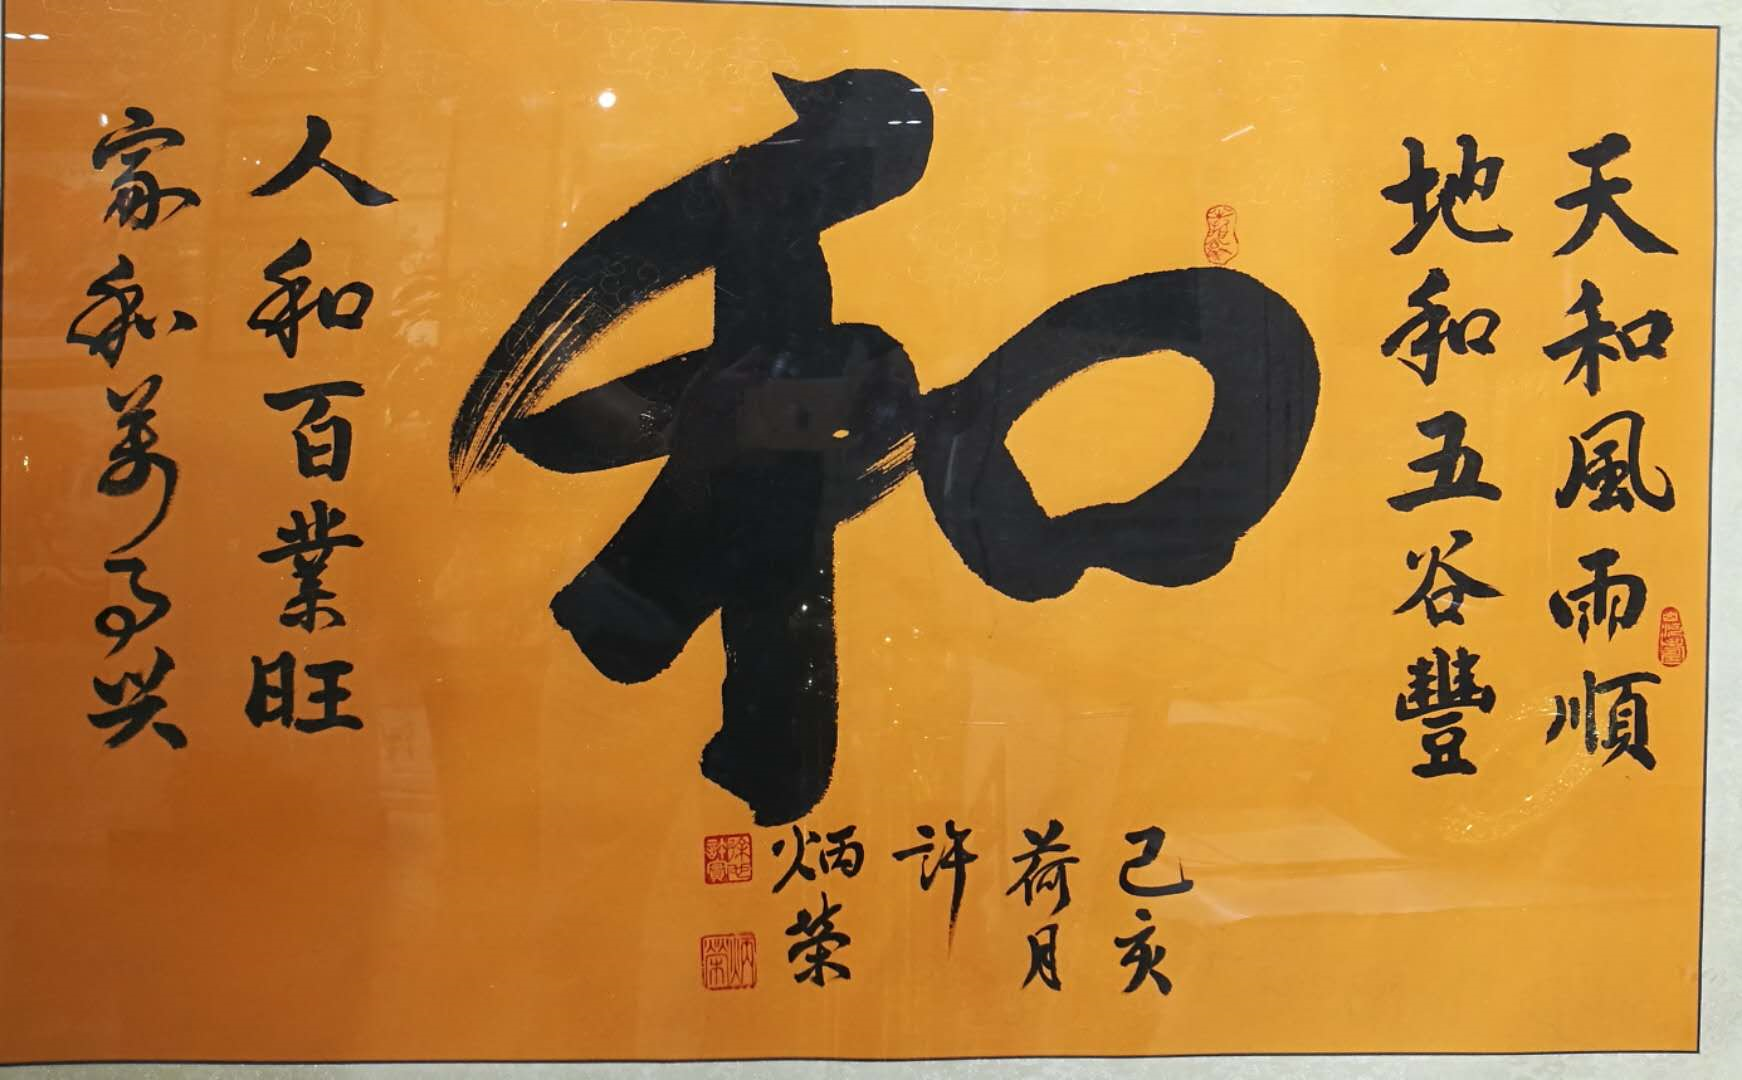 天和風雨順
地和五谷豐
和
人和百業旺
家和萬事兴
己亥
荷月
許
炳荣